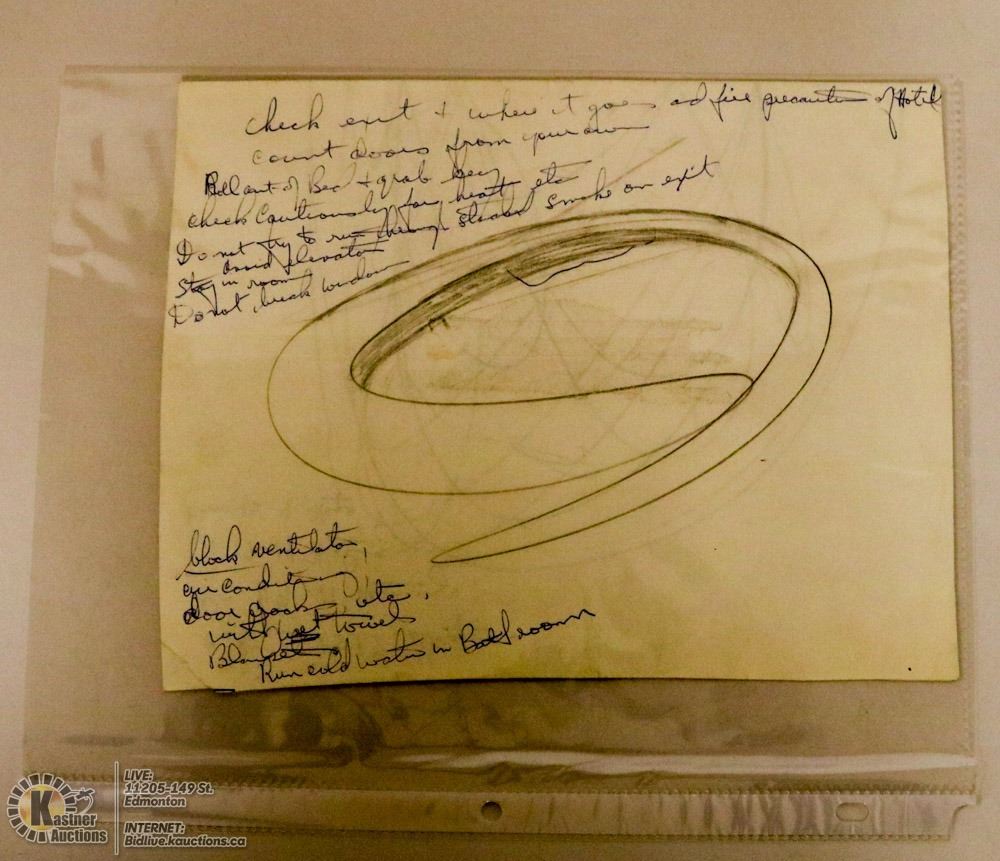 check exit + where it goes and fire precaution of Hotel
count doors from your own
Roll out of Bed + grab key
check cautiously for heat etc
Do not try to run through smoke on exit
avoid elevator
Stay in room
Do not break window
block ventilator,
air conditioning,
door etc.
with wet towels
Blanket
Run cold water in Bathroom
K
Kastner
Auctions
LIVE:
11205-149 St.
Edmonton
INTERNET:
Bidlive.kauctions.ca